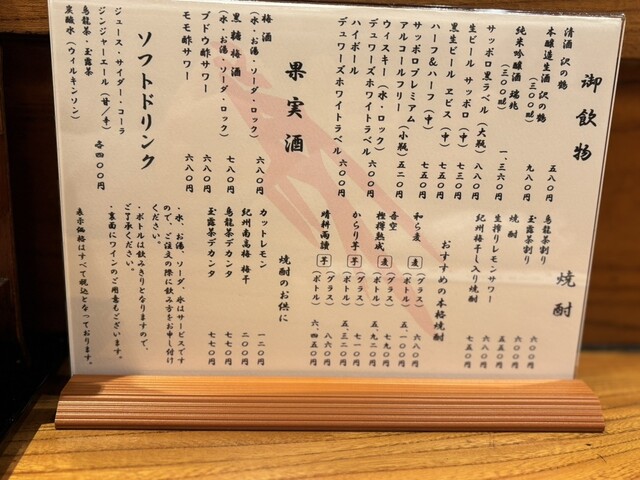 御飲物
清酒 沢の鶴
本醸造生酒 沢の鶴
(三〇〇㎖) 九八〇円
純米吟醸酒 瑞兆
(三〇〇㎖) 一、三六〇円
サッポロ黒ラベル (大瓶) 八八〇円
生ビール サッポロ (中) 七三〇円
黒生ビール ヱビス (中) 七五〇円
ハーフ&ハーフ (中) 七五〇円
サッポロプレミアム
アルコールフリー (小瓶) 五二〇円
ウィスキー (水・ロック)
デュワーズホワイトラベル 六〇〇円
ハイボール
デュワーズホワイトラベル 六〇〇円
果実酒
梅酒
(水・お湯・ソーダ・ロック) 六八〇円
黒糖梅酒
(水・お湯・ソーダ・ロック) 七八〇円
ブドウ酢サワー 六八〇円
モモ酢サワー 六八〇円
ソフトドリンク
ジュース・サイダー・コーラ
ジンジャーエール (甘/辛)
烏龍茶・玉露茶
炭酸水 (ウィルキンソン)
各四〇〇円
焼酎
烏龍茶割り 六〇〇円
玉露茶割り 六〇〇円
焼酎 五五〇円
生搾りレモンサワー 六八〇円
紀州梅干し入り焼酎 七五〇円
おすすめの本格焼酎
和ら麦 麦 (グラス) 六八〇円
(ボトル) 五、一〇〇円
吾空
樫樽熟成 麦 (グラス) 七九〇円
(ボトル) 五、九二〇円
からり芋 芋 (グラス) 七一〇円
(ボトル) 五、三二〇円
晴耕雨讀 芋 (グラス) 八六〇円
(ボトル) 六、四五〇円
焼酎のお供に
カットレモン 一二〇円
紀州南高梅 梅干 二〇〇円
烏龍茶デカンタ 七七〇円
玉露茶デカンタ 七七〇円
・水、お湯、ソーダ、氷はサービスです
ので、ご注文の際に飲み方をお申し付け
ください。
・ボトルは飲みきりとなりますので、
ご了承ください。
・裏面にワインのご用意もございます。
表示価格はすべて税込となっております。